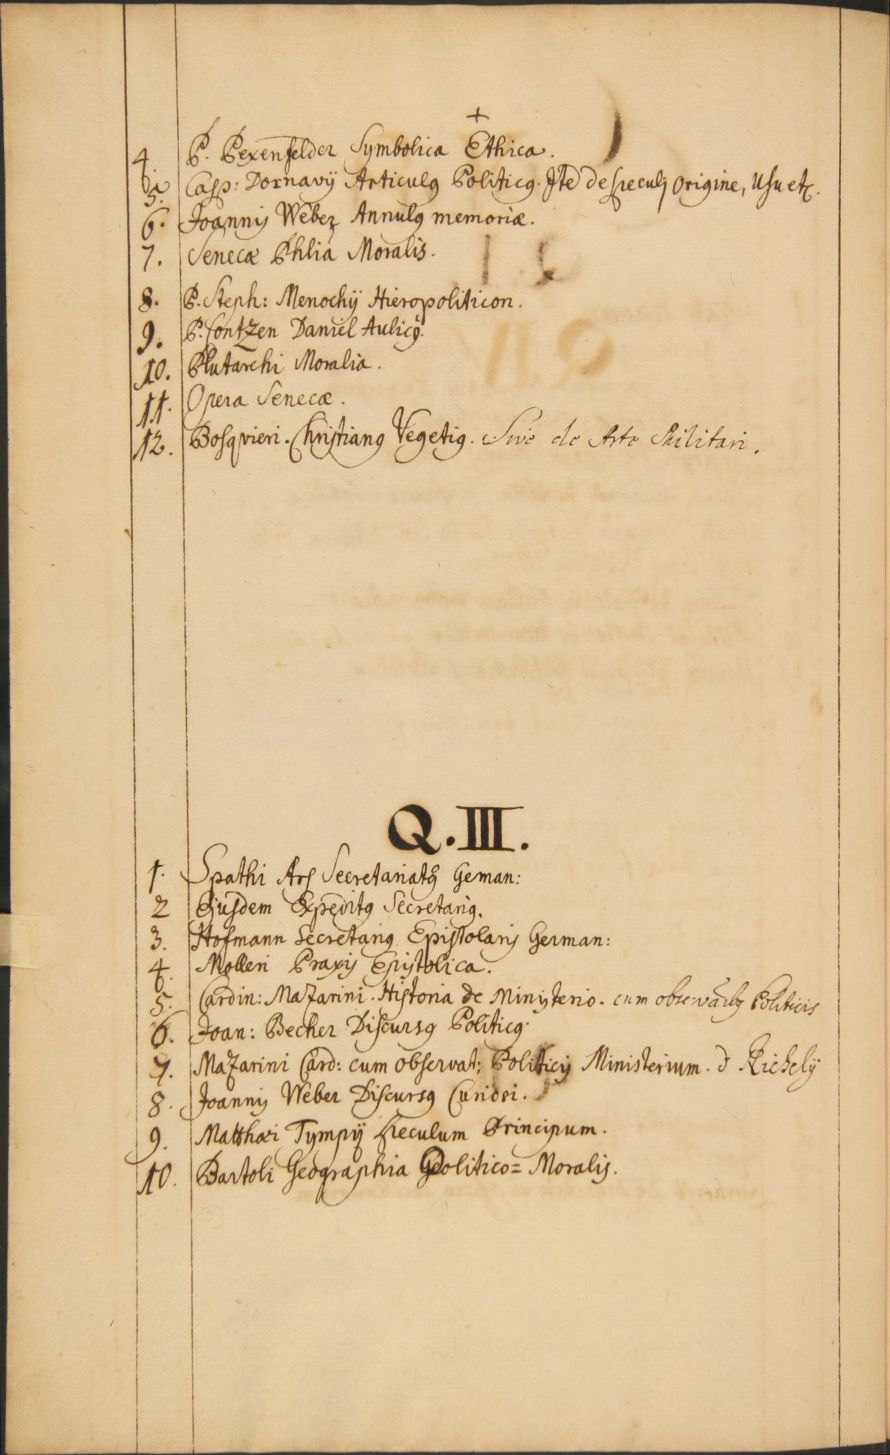 +
4. P. Pexenfelder Symbolica Ethica.
5. Casp: Dornavij Articulꝰ Politicꝰ. Ite de speculj origine, Usu etc.
6. Joannis Weber Annulꝰ memoriæ.
7. Senecæ Phlia Moralis.
8. P. Steph: Menochij Hieropoliticon.
9. P. Contzen Daniel Aulicꝰ.
10. Plutarchi Moralia.
11. Opera Senecæ.
12. Bosqvieri. Christianꝰ Vegetiꝰ. Sive de Arte Militari.
Q.III.
1. Spathi Ars Secretariatꝰ Geman:
2 Ejusdem Expeditꝰ Secretariꝰ.
3. Hofmann Secretariꝰ Epistolaris German:
4. Molleri Praxis Epistolica.
5. Cardin: Mazarini. Historia de Ministerio. cum observāibꝰ Politicis
6. Joan: Becher Discursꝰ Politicꝰ.
7. Mazarini Card: cum observat: Politicis Ministerium. d Richelij
8. Joannis Weber Discursꝰ Curiosi.
9. Matthæi Tympij Speculum Principum.
10. Bartoli Geographia Politico= Moralis.